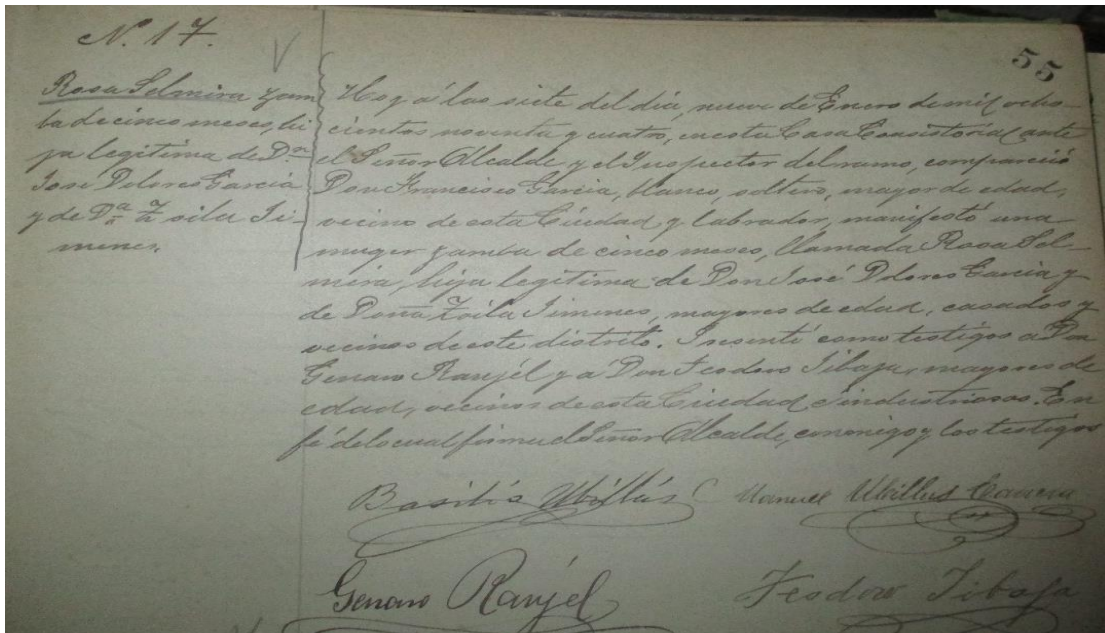 N. 17.
55
Rosa Selmira zam
ba de cinco meses, hi
ja legitima de Dn
Jose Dolores Garcia
y de Da Zoila Ji-
menes.
Hoy á las siete del dia, nueve de Enero de mil ocho-
cientos noventa y cuatro, en esta Casa Consistorial ante
el Señor Alcalde y el Inspector del ramo, compareció
Don Francisco Garcia, blanco, soltero, mayor de edad,
vecino de esta Ciudad y labrador, manifestó una
muger zamba de cinco meses, llamada Rosa Sel
mira, hija legitima de Don José Dolores Garcia y
de Doña Zoila Jimenes, mayores de edad, casados y
vecinos de este distrito. Presentó como testigos a Don
Genaro Ranjél y á Don Teodoro Tibaja, mayores de
edad, vecinos de esta Ciudad é industriosos. En
fé de lo cual firma el Señor Alcalde, conmigo y los testigos
Basilio Ubillús C Manuel Ubillus
Genaro Ranjel Teodoro Tibaja